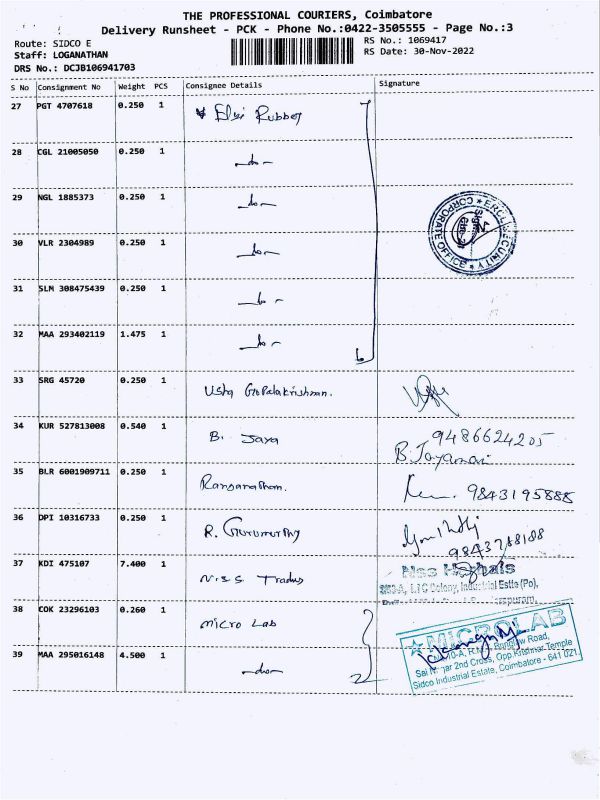 THE PROFESSIONAL COURIERS, Coimbatore
Delivery Runsheet - PCK - Phone No.:0422-3505555 - Page No.:3
Route: SIDCO E
RS No.: 1069417
Staff: LOGANATHAN
RS Date: 30-Nov-2022
DRS No.: DCJB106941703
S No Consignment No Weight PCS Consignee Details Signature
27 PGT 4707618 0.250 1 Elsi Rubber
28 CGL 21005050 0.250 1 -do-
29 NGL 1885373 0.250 1 -do-
30 VLR 2304989 0.250 1 -do-
CORPORATE OFFICE
31 SLM 308475439 0.250 1 -do-
32 MAA 293402119 1.475 1 -do-
6
33 SRG 45720 0.250 1 Usha Gopalakrishnan.
34 KUR 527813008 0.540 1 B. Jaya 9486624205
B. Jayamani
35 BLR 6001909711 0.250 1 Ranganathan. 9843195888
36 DPI 10316733 0.250 1 R. Gurumurthy
37 KDI 475107 7.400 1 N.S.S Trades
Colony, Industrial Estte (Po),
38 COK 23296103 0.260 1 Micro Lab
MICROLAB
Road,
2nd Cross, Opp.Krishnar Temple
Sidco Industrial Estate, Coimbatore - 641 021.
39 MAA 295016148 4.500 1 -do-
2